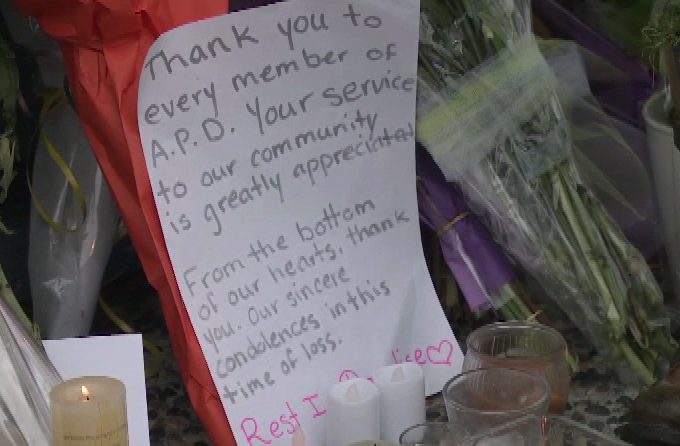 Thank you to
every member of
A.P.D. Your service
to our community
is greatly appreciated
From the bottom
of our hearts, thank
you. Our sincere
condolences in this
time of loss.
Rest I